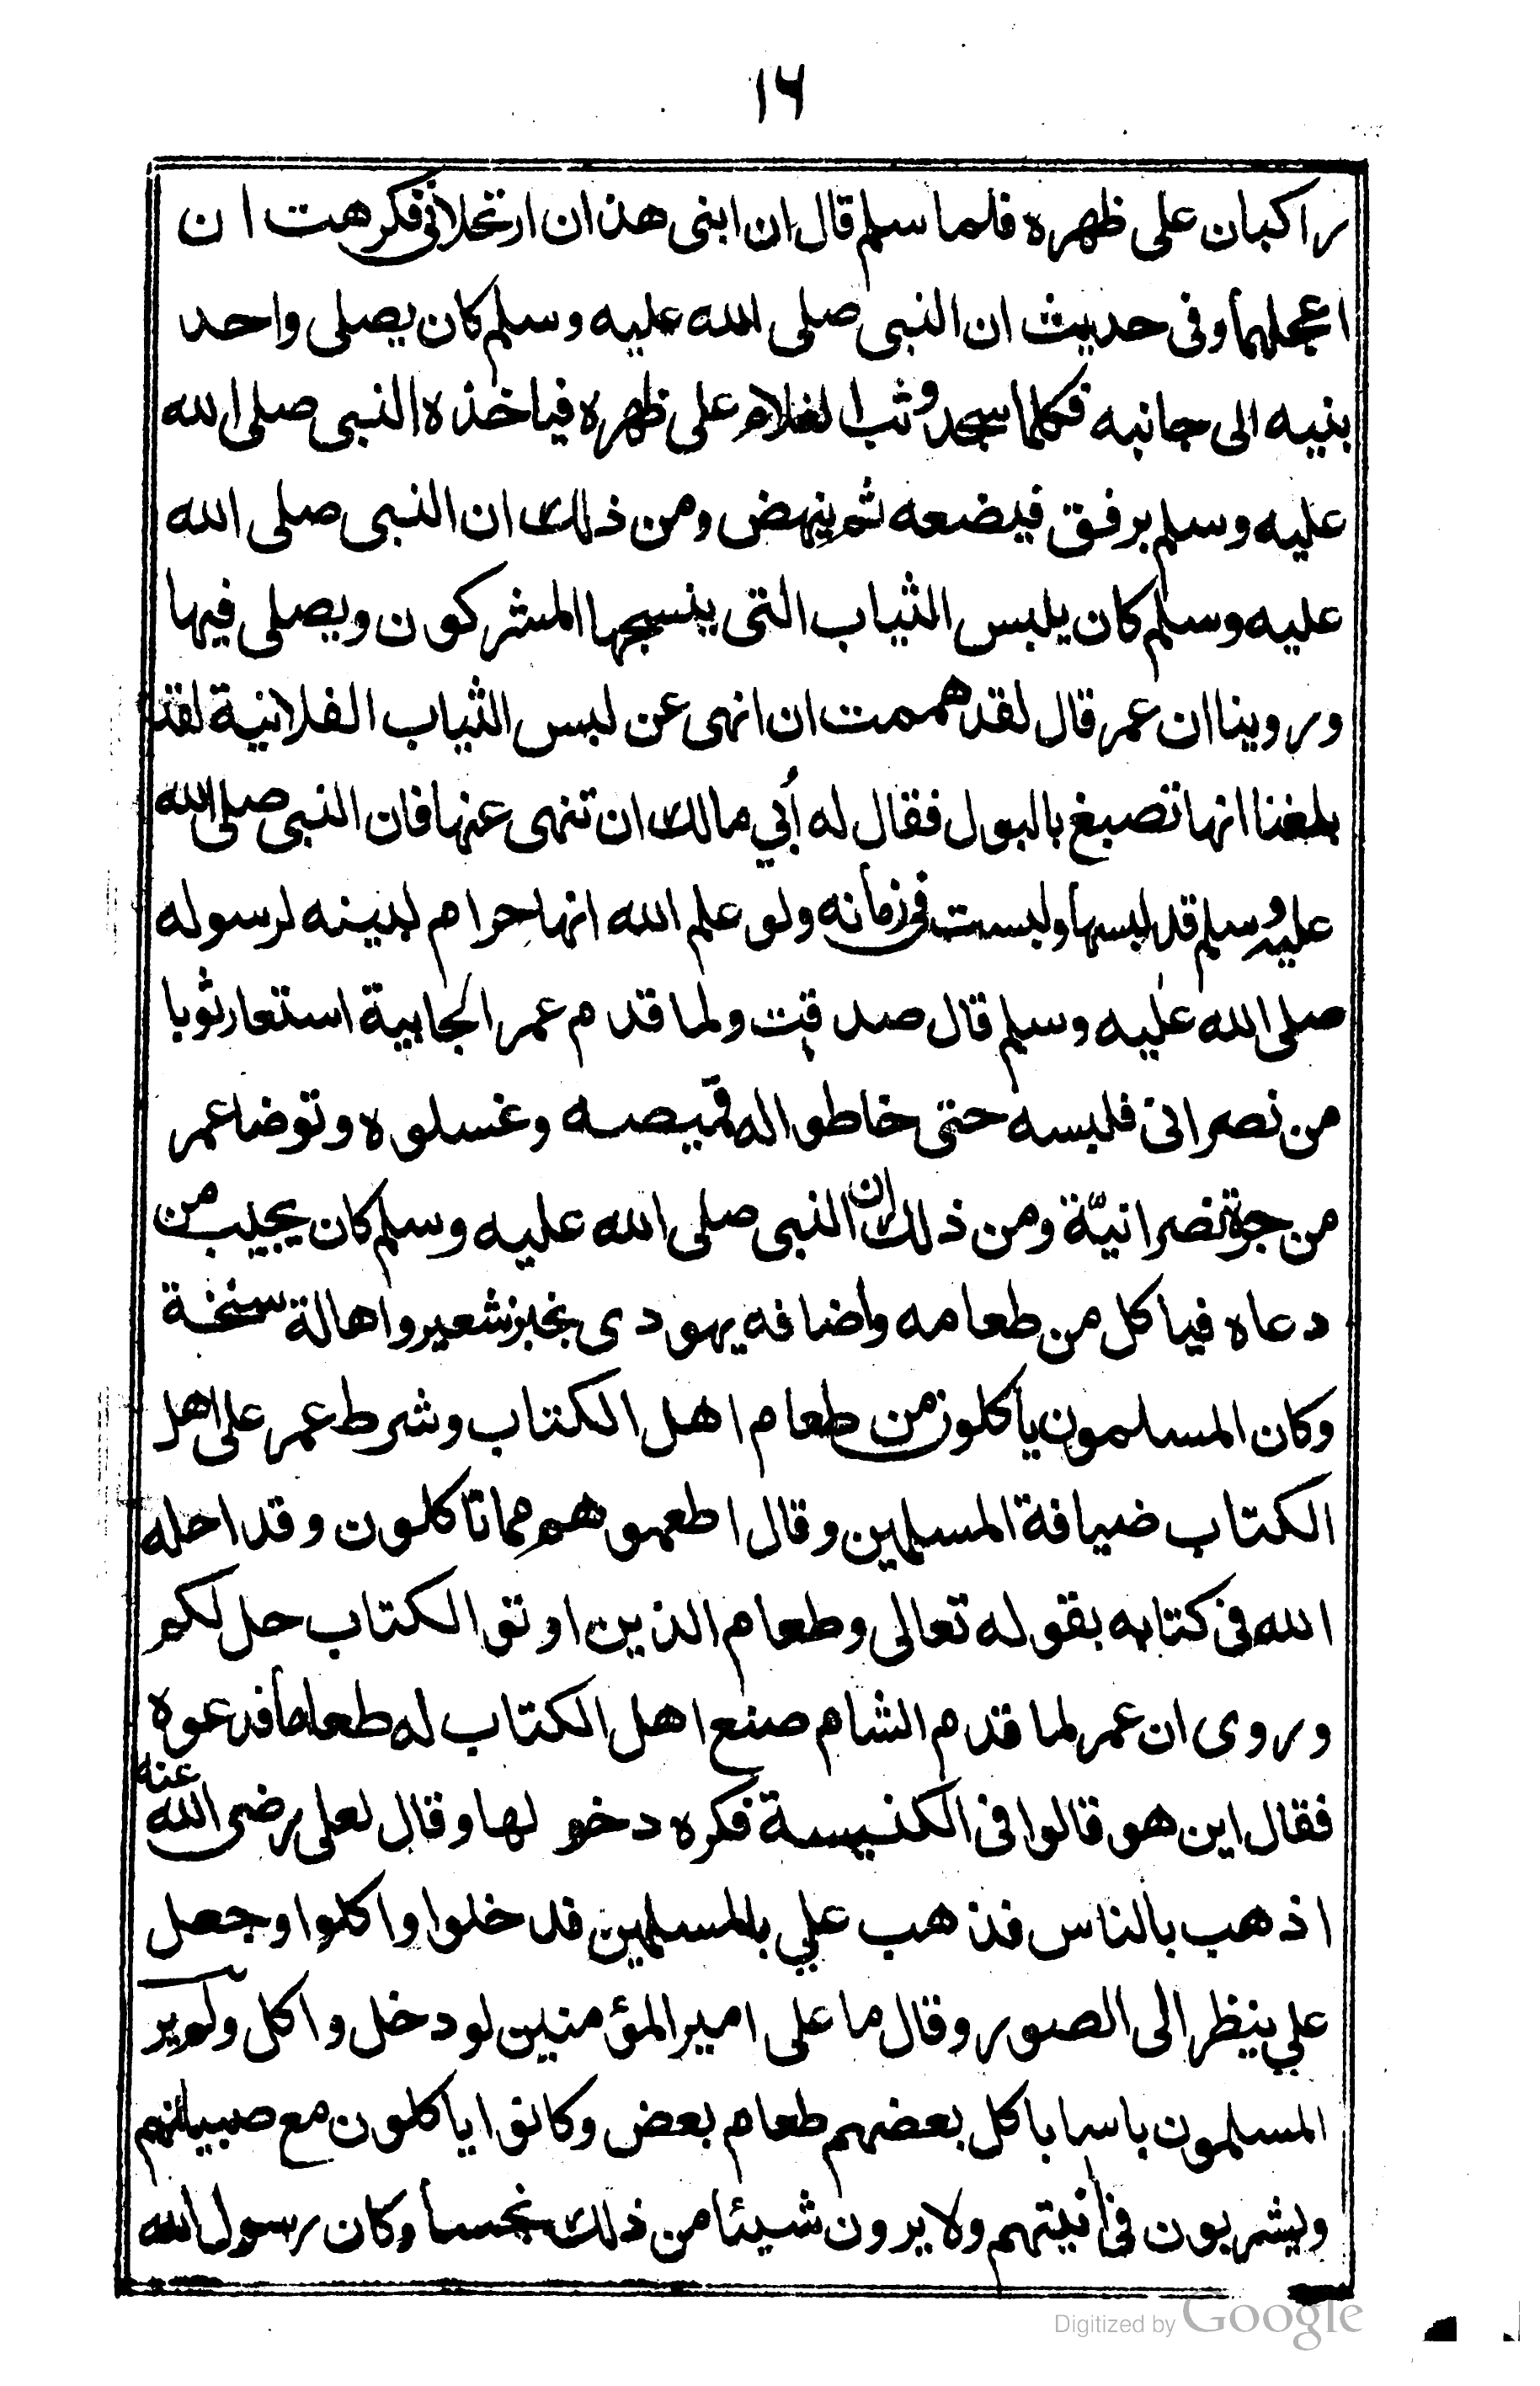 ١٦
راكبان على ظهره فلما سلم قال ان ابنى هذان ارتحلانى فكرهت ان
اعجلهما وفى حديث ان النبى صلى الله عليه وسلم كان يصلى واحد
بنيه الى جانبه فكلما سجد وثب الغلام على ظهره فياخذه النبى صلى الله
عليه وسلم برفق فيضعه ثم ينهض ومن ذلك ان النبى صلى الله
عليه وسلم كان يلبس الثياب التى ينسجها المشركون ويصلى فيها
وروينا ان عمر قال لقد هممت ان انهى عن لبس الثياب الفلانية لقد
بلغنا انها تصبغ بالبول فقال له أبي مالك ان تنهى عنها فان النبى صلى الله
عليه وسلم قد لبسها ولبست فى زمانه ولو علم الله انها حرام لبينه لرسوله
صلى الله عليه وسلم قال صدقت ولما قدم عمر الجابية استعار ثوبا
من نصرانى فلبسه حتى خاطوا له قميصه وغسلوه وتوضا عمر
من جرة نصرانيّة ومن ذلك ان النبى صلى الله عليه وسلم كان يجيب من
دعاه فياكل من طعامه واضافه يهودى بخبز شعير واهالة سنخة
وكان المسلمون ياكلون من طعام اهل الكتاب وشرط عمر على اهل
الكتاب ضيافة المسلمين وقال اطعموهم مما تاكلون وقد احله
الله فى كتابه بقوله تعالى وطعام الذين اوتو الكتاب حل لكم
وروى ان عمر لما قدم الشام صنع اهل الكتاب له طعاما فدعوه
فقال اين هو قالوا فى الكنيسة فكره دخولها وقال لعلى رضى الله عنه
اذهب بالناس فذهب علي بالمسلمين فدخلوا واكلوا وجعل
علي ينظر الى الصور وقال ما على امير المؤمنين لو دخل واكل ولم ير
المسلمون باسا باكل بعضهم طعام بعض وكانوا ياكلون مع صبيانهم
ويشربون فى انيتهم ولا يرون شيئا من ذلك نجسا وكان رسول الله
Digitized by Google